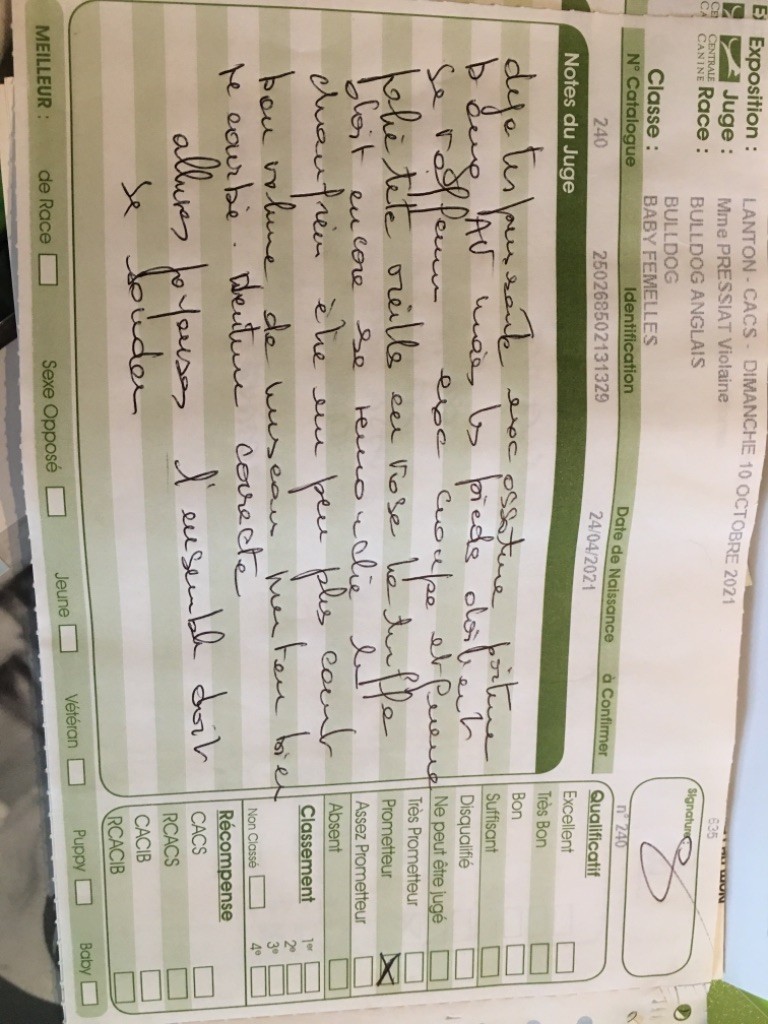 Exposition : LANTON - CACS - DIMANCHE 10 OCTOBRE 2021
Juge : Mme PRESSIAT Violaine
CENTRALE CANINE
Race : BULLDOG ANGLAIS
BULLDOG
Classe : BABY FEMELLES
635
Signature
N° Catalogue Identification Date de Naissance à Confirmer
240 250268502131329 24/04/2021
n° 240
Notes du Juge
deja tres puissante exc ossature poitrine
bons AV mais les pieds doivent
se raffermir exc croupe et
tete vieille en rose la truffe
doit encore se remonter le
chanfrein être un peu plus court
bon volume de museau menton bien
recourbé. Denture correcte
allures joyeuses l'ensemble doit
se souder
Qualificatif
Excellent
Très Bon
Bon
Suffisant
Disqualifié
Ne peut être jugé
Très Prometteur
Prometteur X
Assez Prometteur
Absent
Classement
1er
2e
3e
Non Classé 4e
Récompense
CACS
RCACS
CACIB
RCACIB
MEILLEUR : de Race Sexe Opposé Jeune Vétéran Puppy Baby